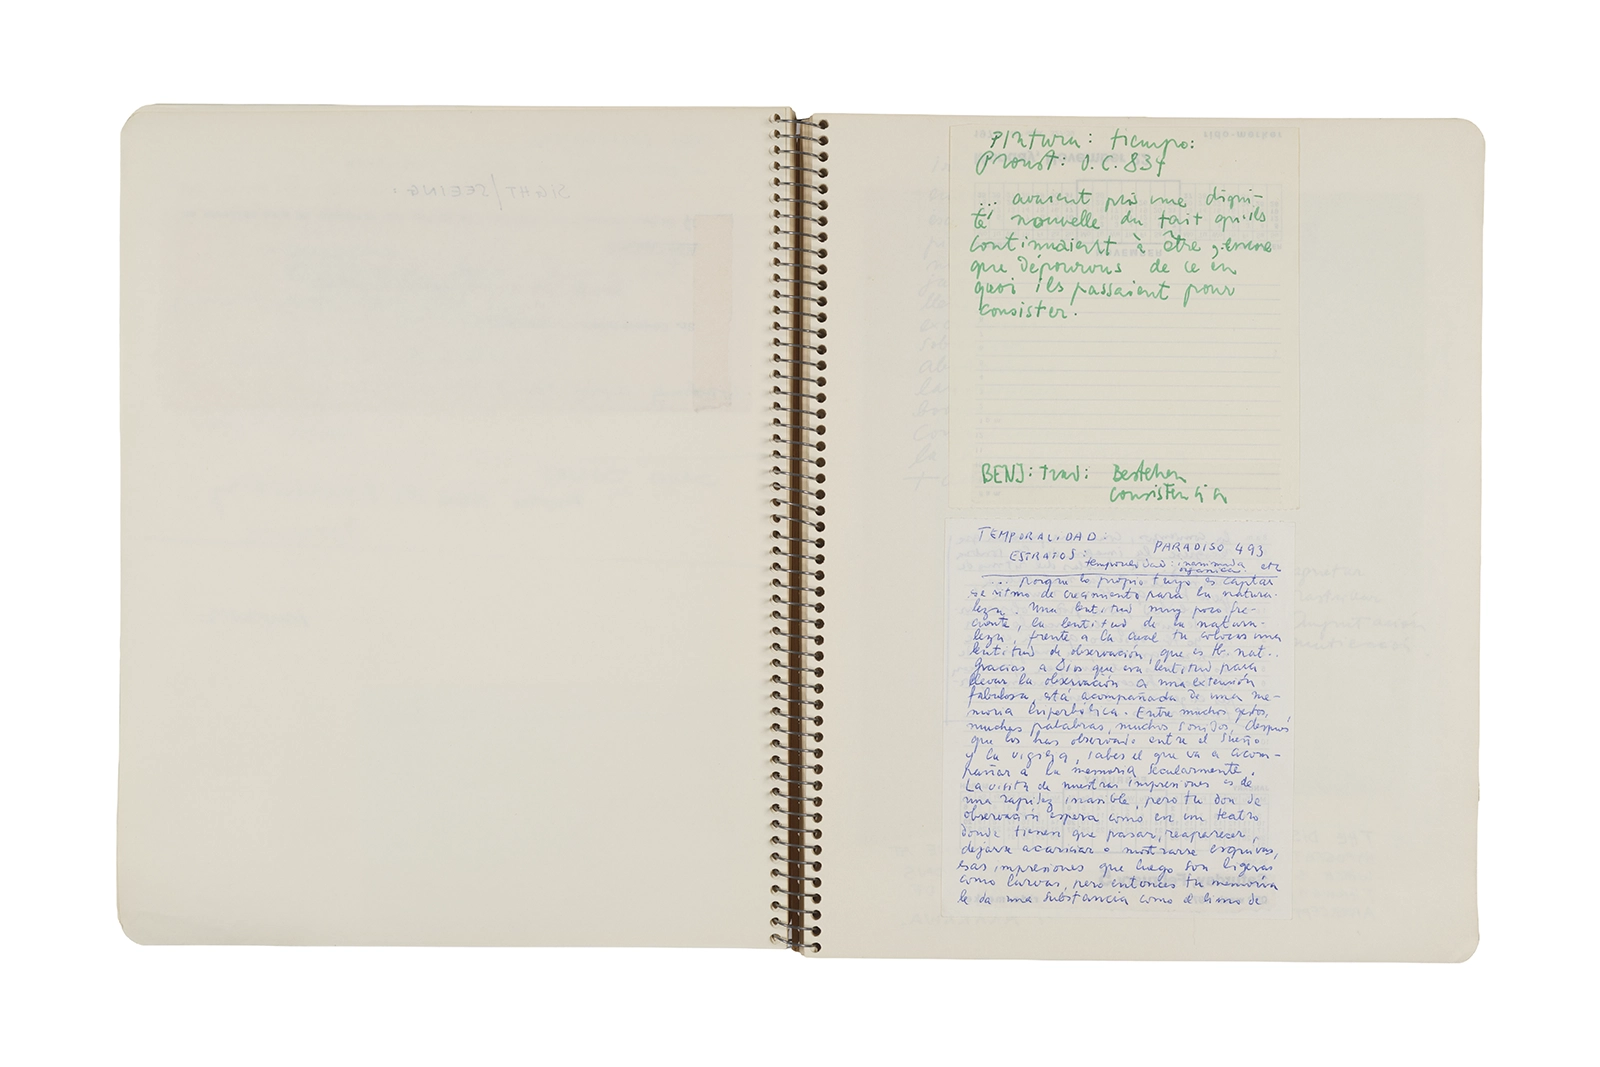 SIGHT/SEEING:
Pintura: tiempo:
Proust: O.C. 834
... avaient pris une digni-
té nouvelle du fait qu'ils
continuaient à être, encore
que dépourvus de ce en
quoi ils passaient pour
consister.
BENJ: trad: Bestehen
consistencia
TEMPORALIDAD:
PARADISO 493
ESTRATOS:
temporalidad: inanimada etc
orgánica
... porque lo propio tuyo es captar
ritmo de crecimiento para la natura-
leza. Una lentitud muy poco fre-
cuente, la lentitud de la natura-
leza, frente a la cual tu colocas una
lentitud de observación, que es tb. nat..
Gracias a Dios que esa lentitud para
llevar la observación a una extensión
fabulosa, está acompañada de una me-
moria hiperbólica. Entre muchos gestos,
muchas palabras, muchos sonidos, después
que los has observado entre el sueño
y la vigilia, sabes el que va a acom-
pañar a la memoria secularmente.
La visita de nuestras impresiones es de
una rapidez inasible, pero tu don de
observación espera como en un teatro
donde tienen que pasar, reaparecer,
dejarse acariciar o mostrarse esquivas,
esas impresiones que luego son ligeras
como larvas, pero entonces tu memoria
le da una substancia como el limo de